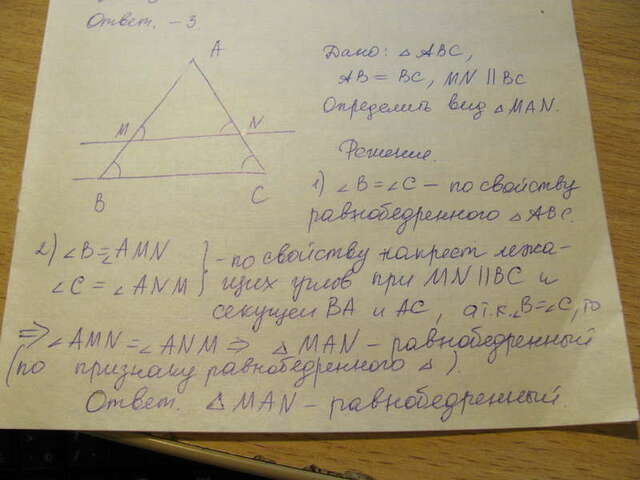 Ответ. – 3.
A
M
N
B
C
Дано: △ ABC,
AB = BC, MN || BC
Определить вид △ MAN.
Решение.
1) ∠B = ∠C – по свойству
равнобедренного △ ABC.
2) ∠B = ∠AMN } – по свойству накрест лежа-
∠C = ∠ANM } щих углов при MN || BC и
секущей BA и AC, а т.к. ∠B = ∠C, то
⇒ ∠AMN = ∠ANM ⇒ △ MAN – равнобедренный
(по признаку равнобедренного △).
Ответ. △ MAN – равнобедренный.